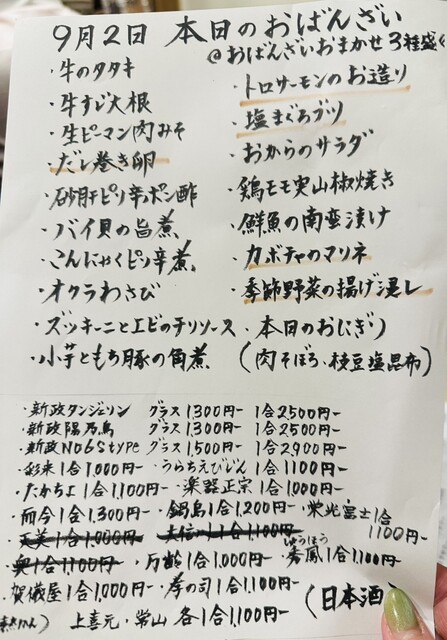 9月2日 本日のおばんざい
@おばんざいおまかせ3種盛
・牛のタタキ
・牛すじ大根
・生ピーマン肉みそ
・だし巻き卵
・砂肝ピリ辛ポン酢
・バイ貝の旨煮
・こんにゃくピリ辛煮
・オクラわさび
・ズッキーニとエビのチリソース
・小芋ともち豚の角煮
・トロサーモンのお造り
・塩まぐろブツ
・おからのサラダ
・鶏モモ実山椒焼き
・鮮魚の南蛮漬け
・カボチャのマリネ
・季節野菜の揚げ浸し
・本日のおにぎり
(肉そぼろ、枝豆塩昆布)
・新政タンジェリン グラス1,300円- 1合2500円-
・新政陽乃鳥 グラス1,300円- 1合2500円-
・新政No6 Stype グラス1,500円- 1合2,900円-
・彩來1合1,000円- ・うらちえびじん1合1100円-
・たかちよ1合1,100円- ・楽器正宗1合1,000円-
・而今1合1,300円- ・鍋島1合1,200円- ・栄光冨士1合1100円-
・天美1合1,000円- 1合1100円-
・奥1合1,100円- ・万齢1合1,000円- ・秀鳳1合1,100円-
しゅうほう
・賀儀屋1合1,000円- ・孝の司1合1,100円-
(日本酒)
上喜元・常山 各1合1,100円-